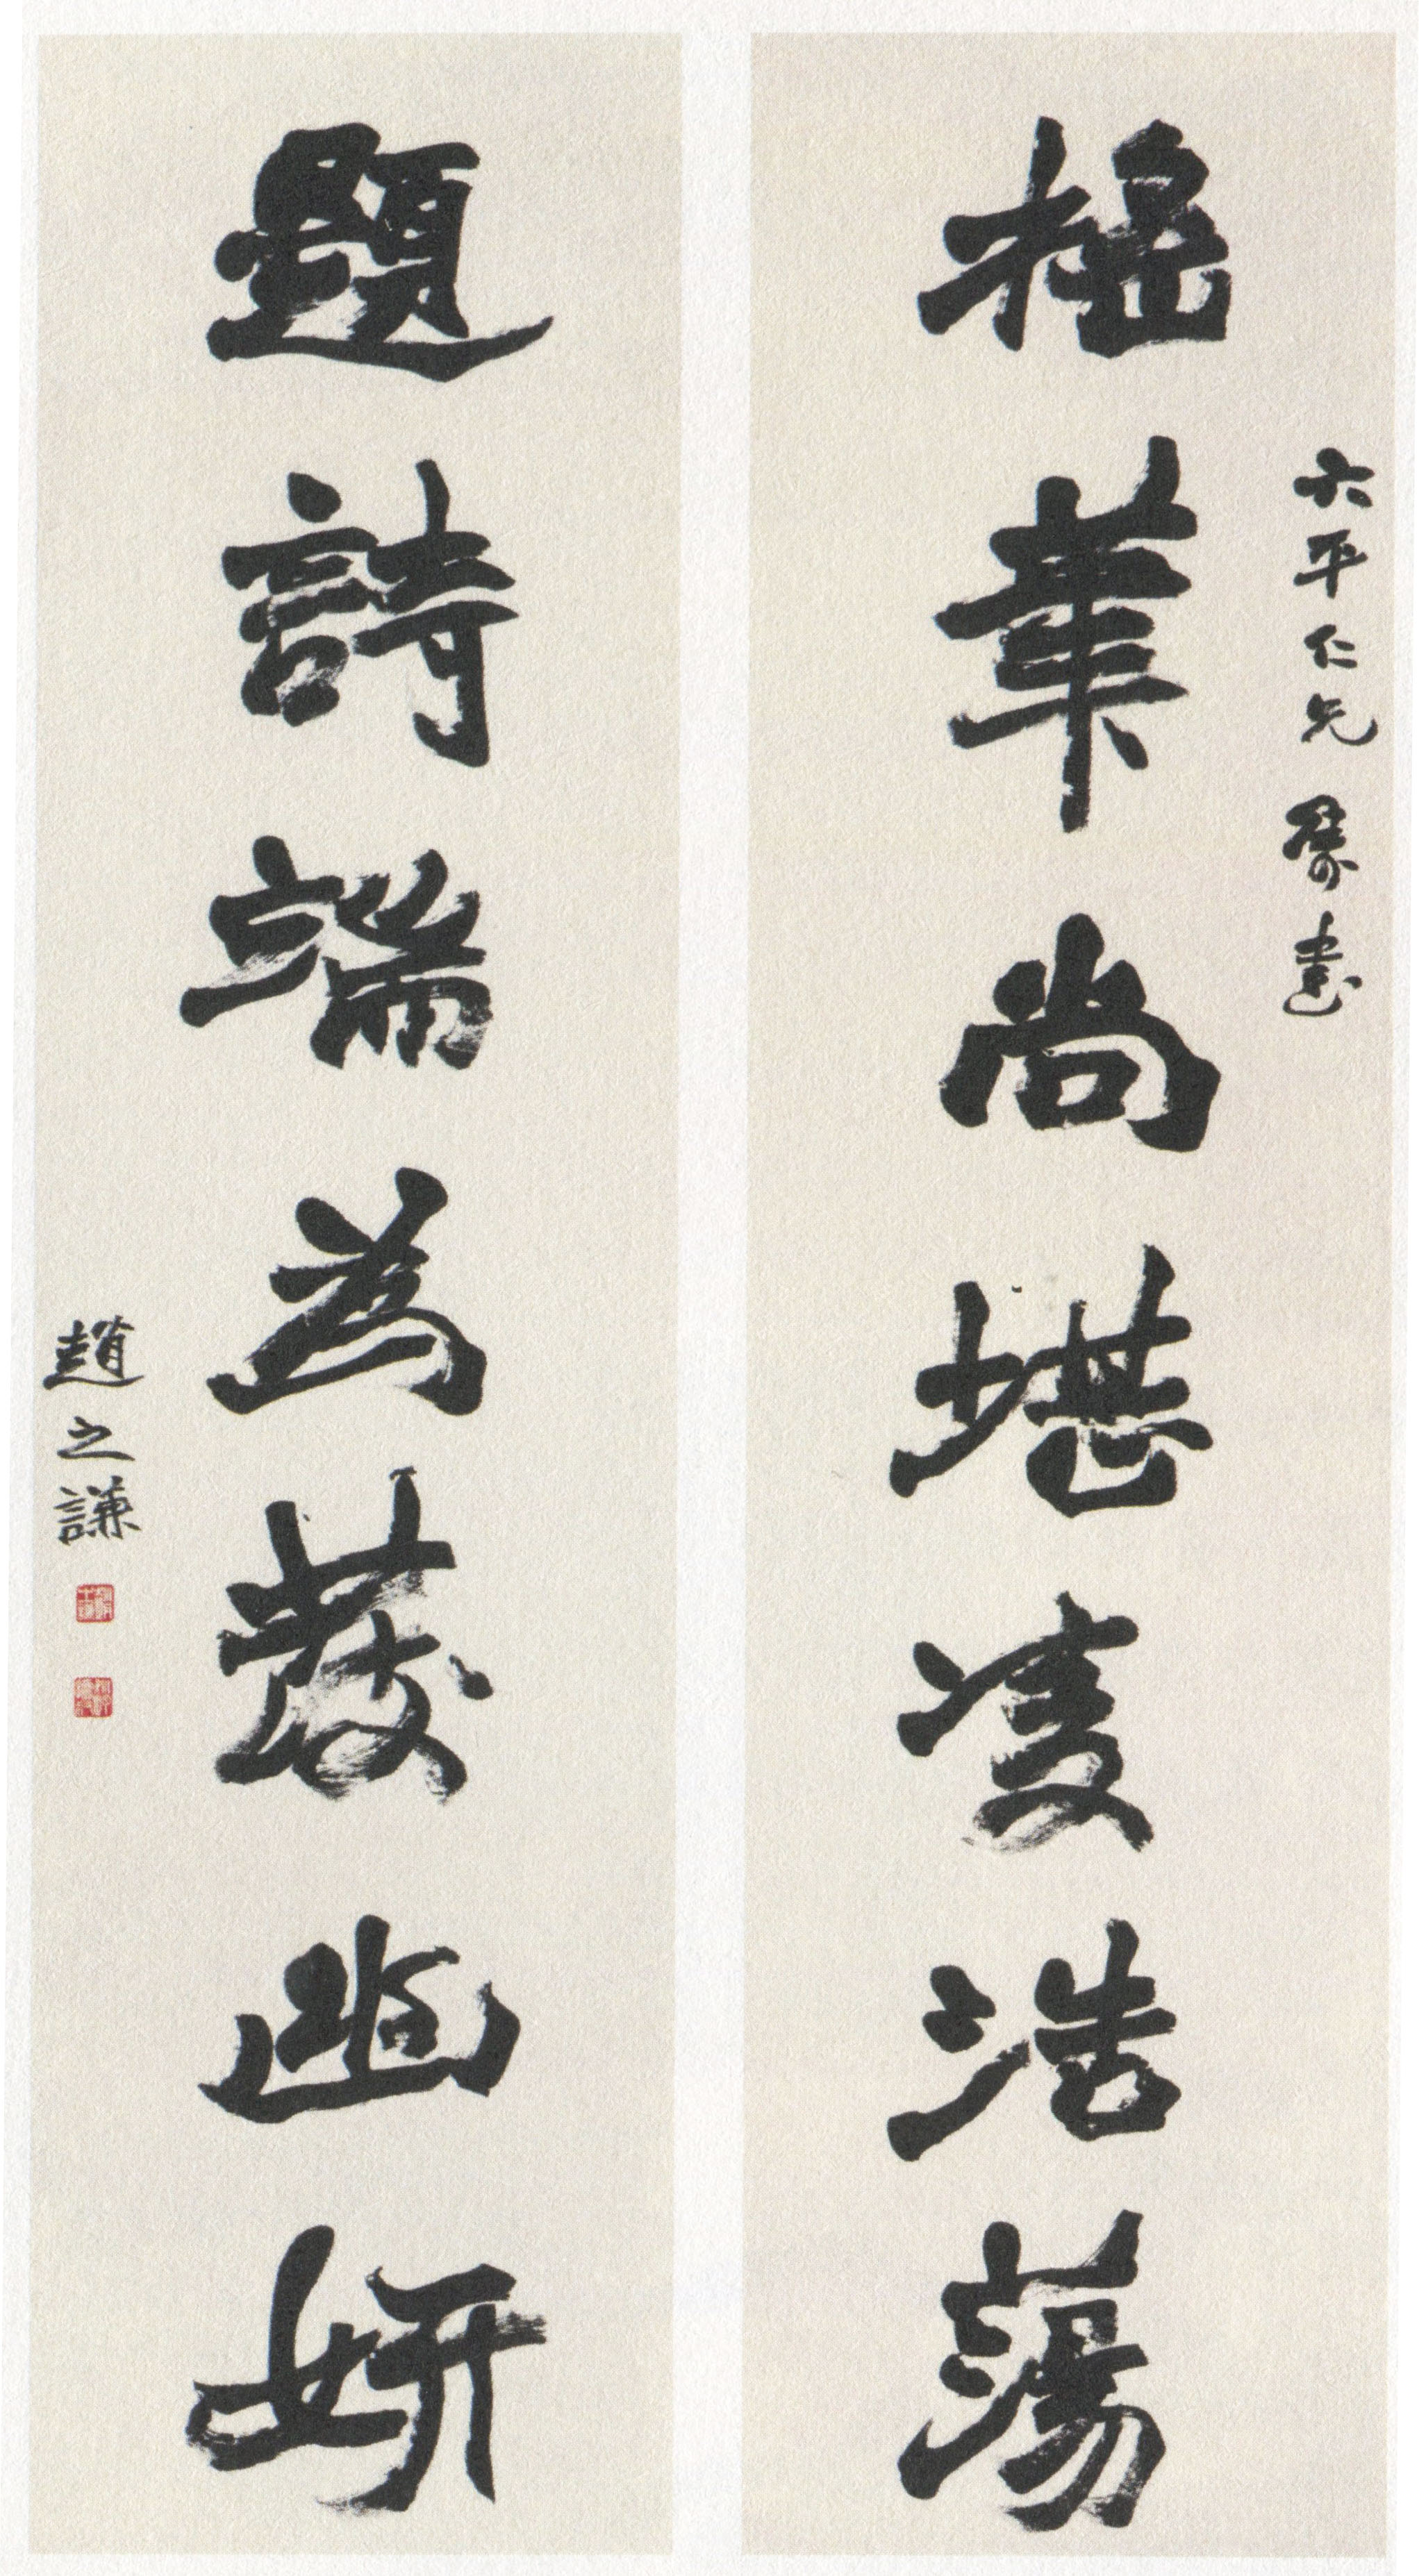 搖筆尚堪凌浩蕩
六平仁兄屬書
題詩端為發幽妍
趙之謙